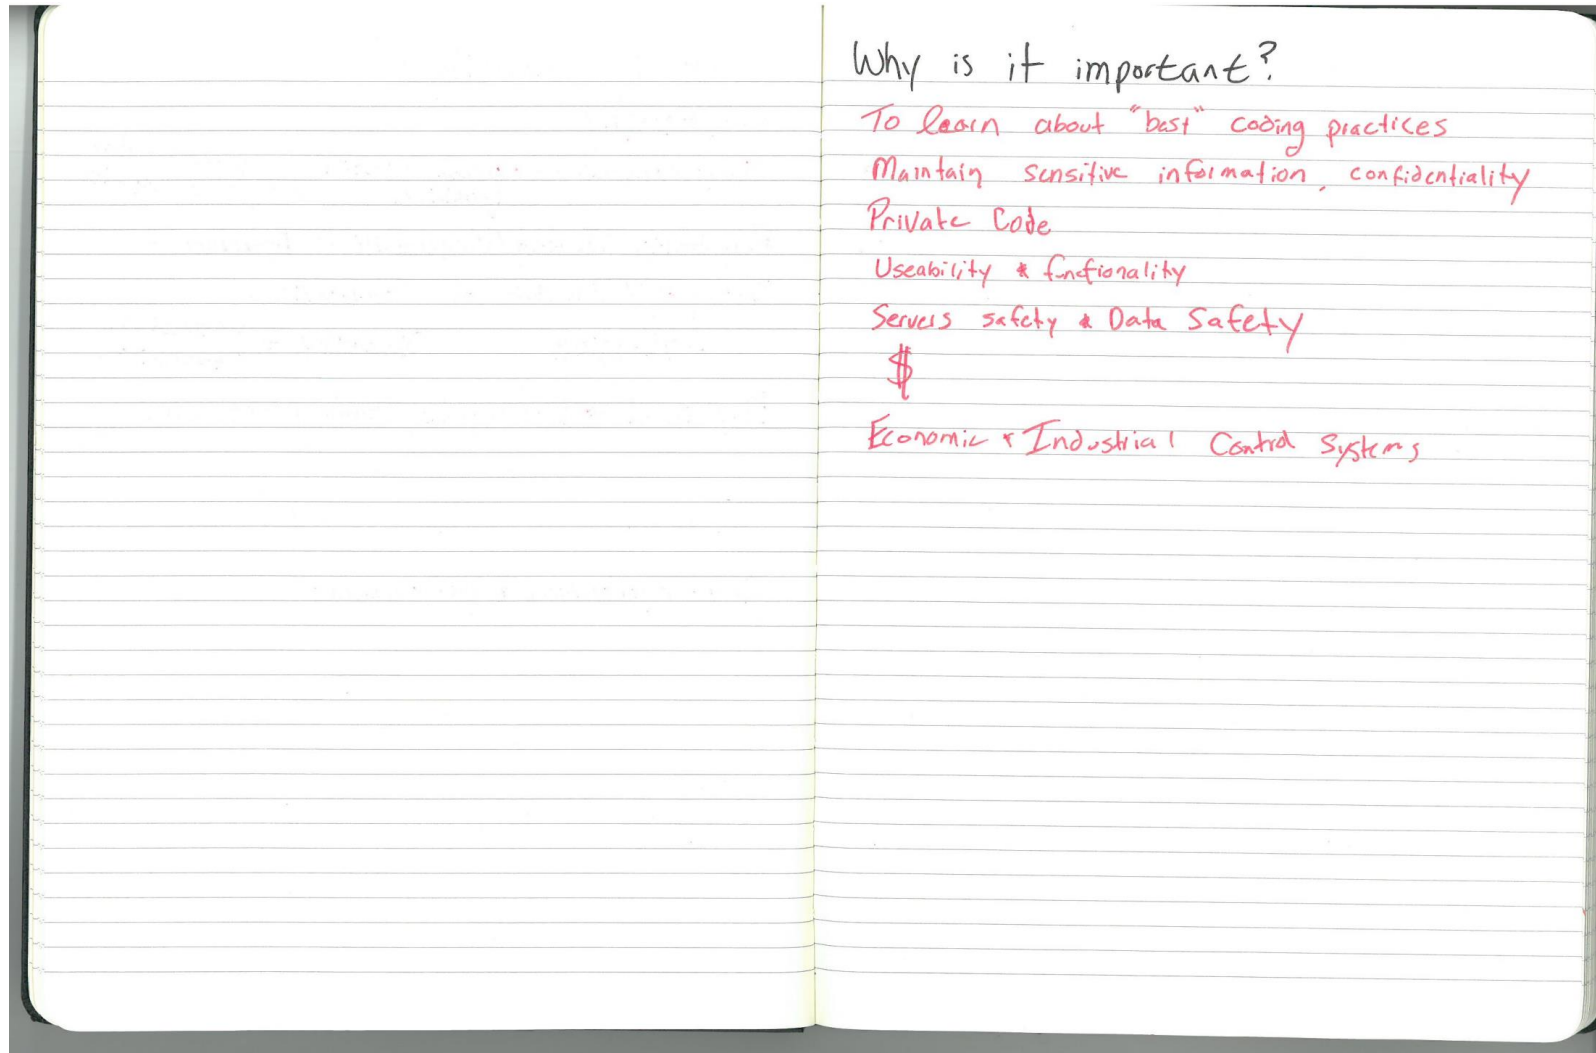 Why is it important?
To learn about "best" coding practices
Maintain sensitive information, confidentiality
Private Code
Useability & functionality
Servers safety & Data Safety
$
Economic & Industrial Control Systems